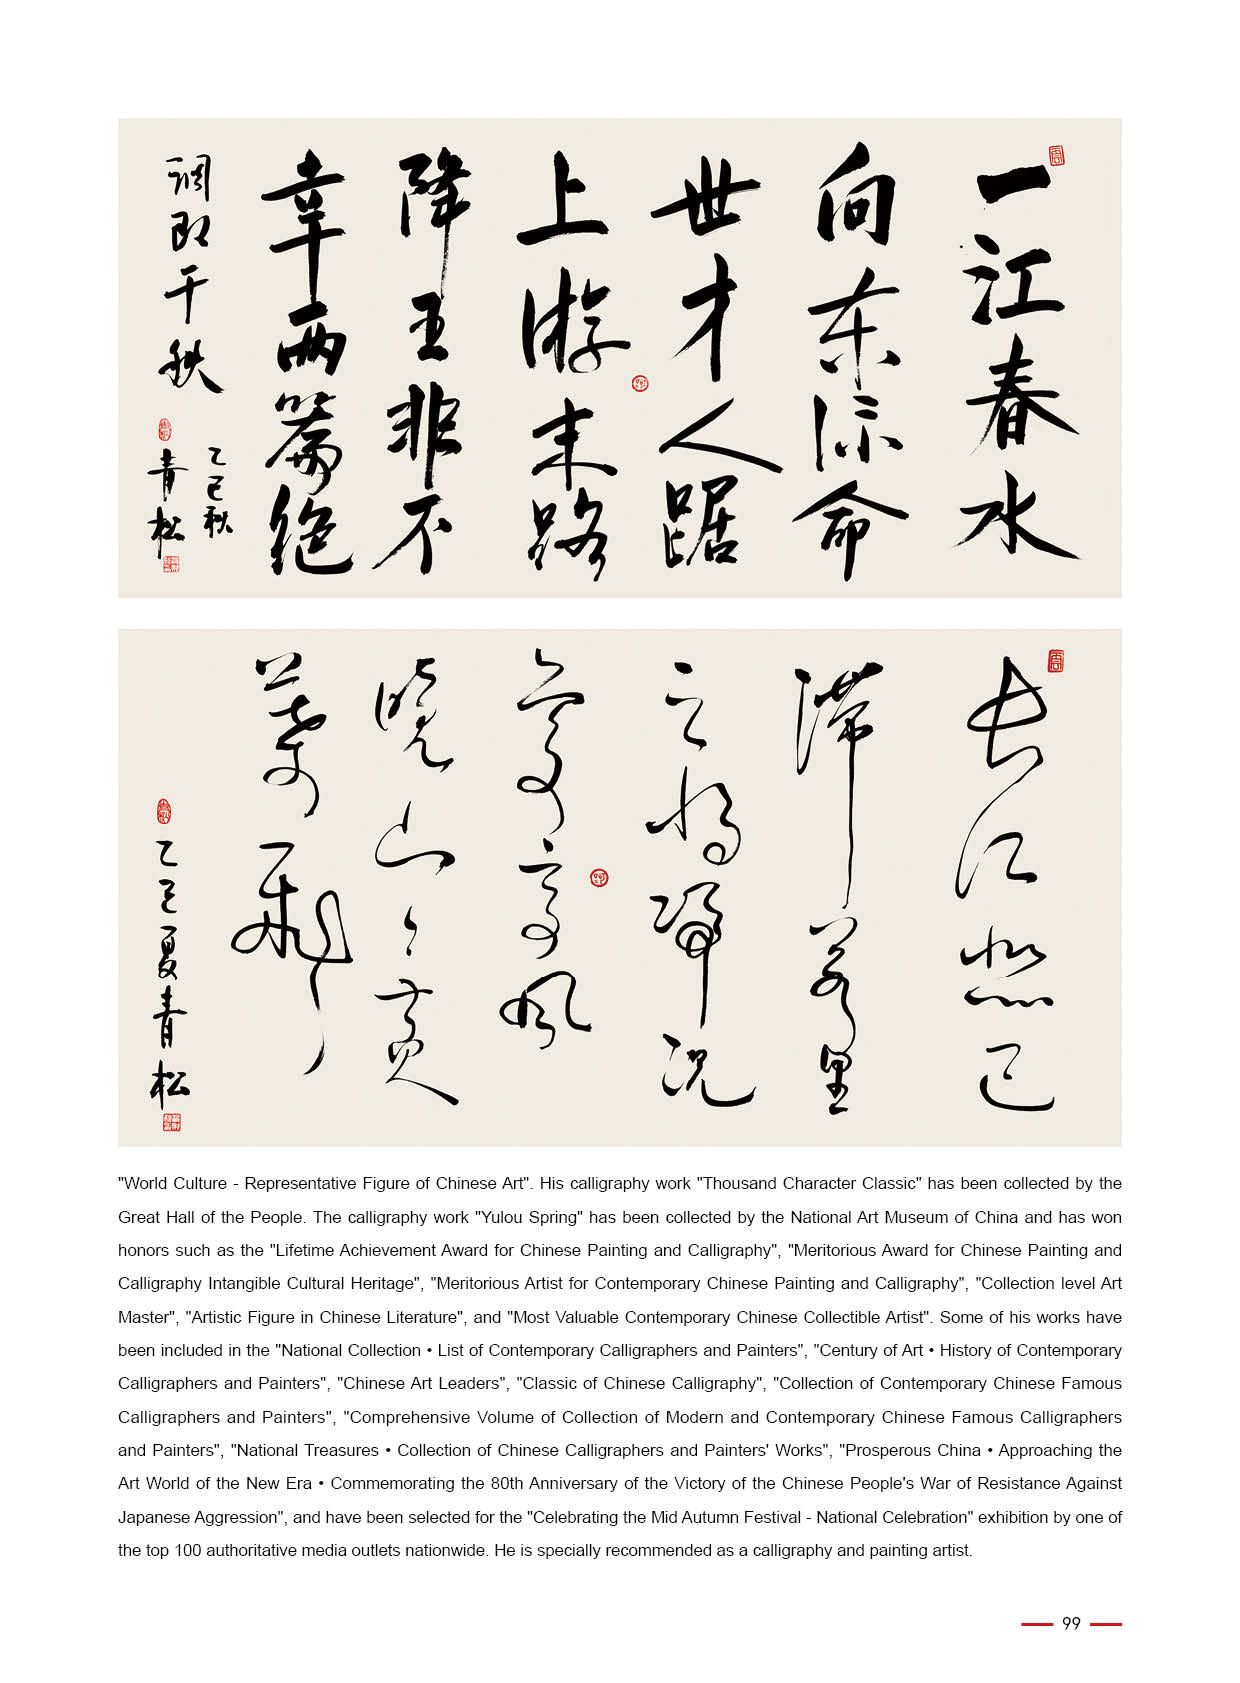 一江春水
向东流命
世才人踞
上游末路
降王非不
幸两篇绝
调即千秋
乙巳秋
青松
长江悲已
滞万里
念将归况
属高风
晚山山黄
叶飞
乙巳夏青松
"World Culture - Representative Figure of Chinese Art". His calligraphy work "Thousand Character Classic" has been collected by the
Great Hall of the People. The calligraphy work "Yulou Spring" has been collected by the National Art Museum of China and has won
honors such as the "Lifetime Achievement Award for Chinese Painting and Calligraphy", "Meritorious Award for Chinese Painting and
Calligraphy Intangible Cultural Heritage", "Meritorious Artist for Contemporary Chinese Painting and Calligraphy", "Collection level Art
Master", "Artistic Figure in Chinese Literature", and "Most Valuable Contemporary Chinese Collectible Artist". Some of his works have
been included in the "National Collection • List of Contemporary Calligraphers and Painters", "Century of Art • History of Contemporary
Calligraphers and Painters", "Chinese Art Leaders", "Classic of Chinese Calligraphy", "Collection of Contemporary Chinese Famous
Calligraphers and Painters", "Comprehensive Volume of Collection of Modern and Contemporary Chinese Famous Calligraphers
and Painters", "National Treasures • Collection of Chinese Calligraphers and Painters' Works", "Prosperous China • Approaching the
Art World of the New Era • Commemorating the 80th Anniversary of the Victory of the Chinese People's War of Resistance Against
Japanese Aggression", and have been selected for the "Celebrating the Mid Autumn Festival - National Celebration" exhibition by one of
the top 100 authoritative media outlets nationwide. He is specially recommended as a calligraphy and painting artist.
99